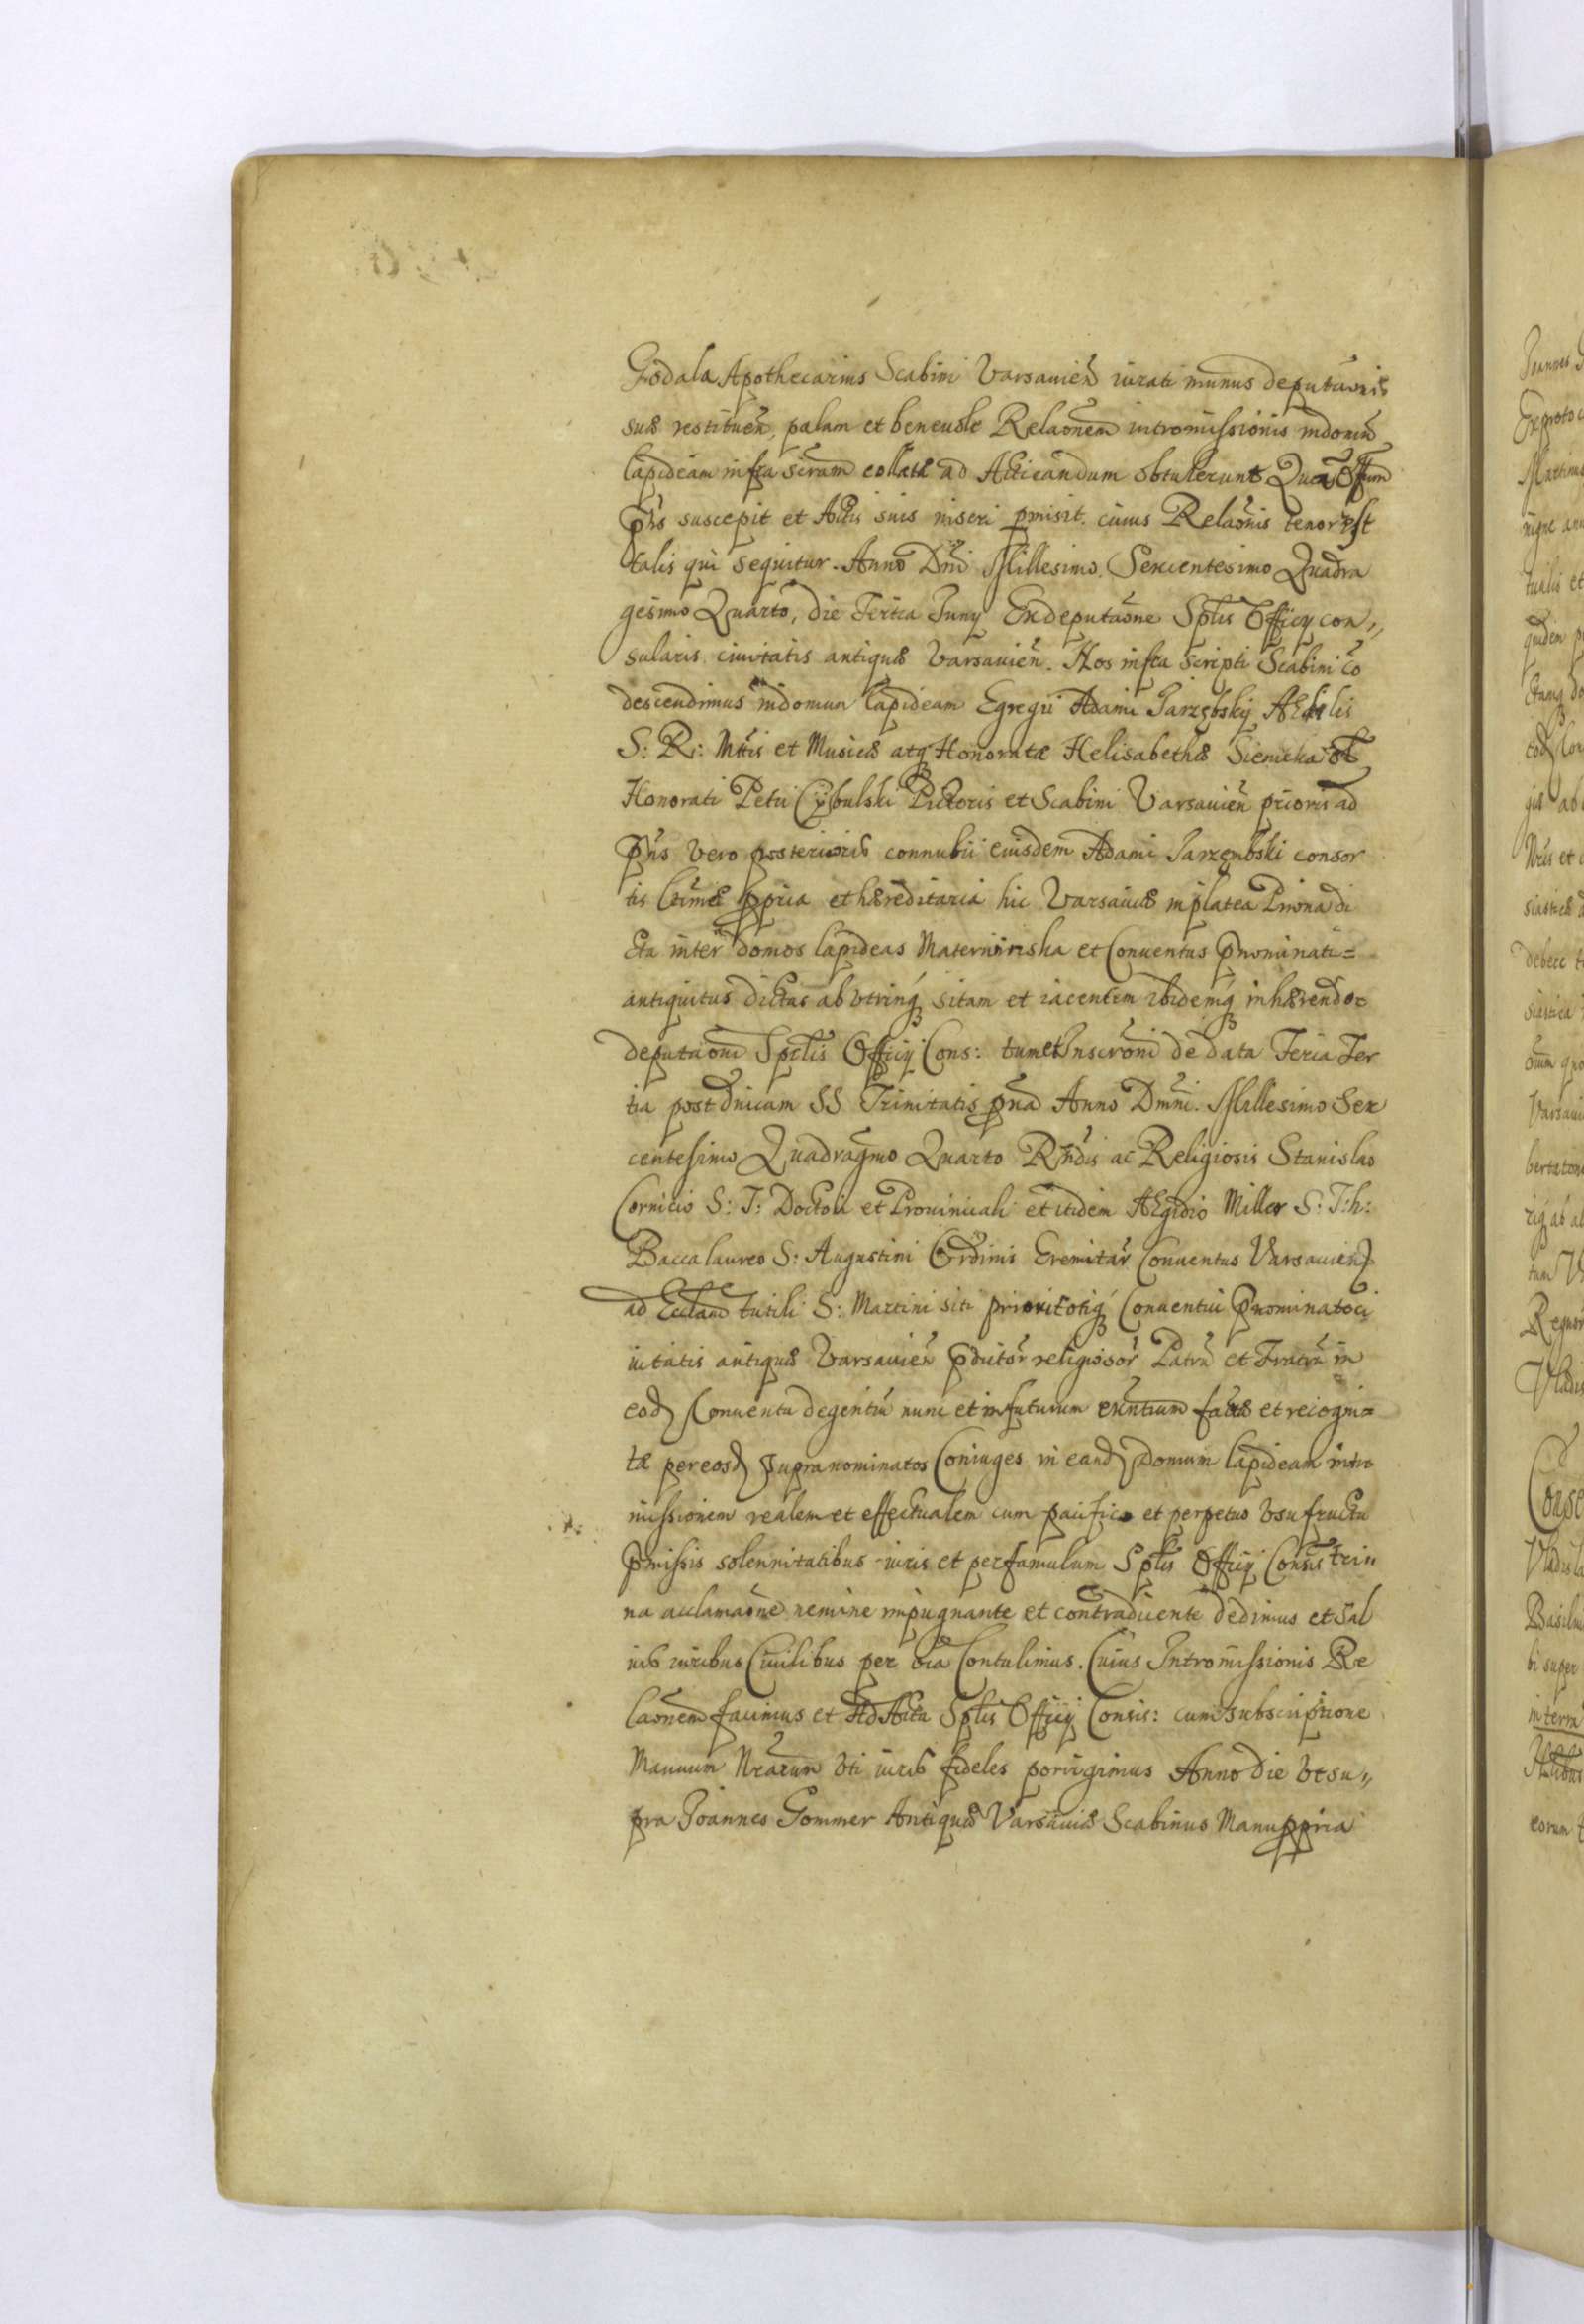 Godala Apothecarius Scabini Varsavień iurati munus deputaōnis
suæ restitueñ, palam et beneuole Relaōnem intromissionis in domū
lapideam infra scrām collatæ ad Acticandum obtulerunt Quā Offium
p̄ns suscepit et Actis suis inseri pmisit. cuius Relaōnis tenor est
talis qui sequitur. Anno Dn̄i Millesimo. Sexcentesimo Quadra
gesimo Quarto, die Tertia Juny Ex deputaōne Splis Officij con„
sularis. ciuitatis antiquæ Varsavień. Nos infra scripti Scabini eo
descendimus in domum lapideam Egregii Adami Jarzębskij AEdilis
S: R: Mttis et Musici atq Honoratæ Helisabethæ Sienicka ol
Honorati Petri Cÿbulski Pictoris et Scabini Varsavień prioris ad
p̄ns vero posterioris connubii eiusdem Adami Jarzembski consor
tis ltimæ ppria et hæreditaria hic Varsaviæ in platea Piwna di
cta inter domos lapideas Materninska et Conuentus Pnominati=
antiquitus dictas ab vtrinq́ sitam et iacentem ibidemq́ inhærendo
deputaoni Splis Officij Cons: tum et Inscrōni de data Feria Ter
tia post Dnicam SS Trinitatis pn̄a Anno Dmni. Millesimo Sex
centesimo Quadragmo Quarto Rn̄dis ac Religiosis Stanislao
Cornicio S: T: Doctori et Prouinciali et itidem AEgidio Miller S: T:h:
Baccalaureo S: Augustini Ordinis Eremitar̄ Conuentus Varsavień
ad Ecclām tutili S: Martini siti priori totiq́ Conuentui Pnominato ci
uitatis antiquæ Varsavień pdictor̄ religiosor̄ Patrū et Fratrū in
eod Conuentu degentiū nunc et in futurum exn̄tium factæ et recogni=
tæ per eosd supranominatos Coniuges in eand domum lapideam intro
missionem realem et effectualem cum pacifico et perpetuo vsu fructu
Pmissis solennitatibus iuris et per famulum Splis Officij Consis trin
na acclamaōne nemine impugnante et contradicente dedimus et Sal
uis iuribus Ciuilibus per oīa Contulimus. Cuius Intromissionis Re
laōnem facimus et Ad Acta Splis Officij Consis: cum subscriptione
Manuum Nrarum vti iuris fideles porrigimus Anno die vt su„
pra Joannes Gommer Antiquæ Varsaviæ Scabinus Manu ppria